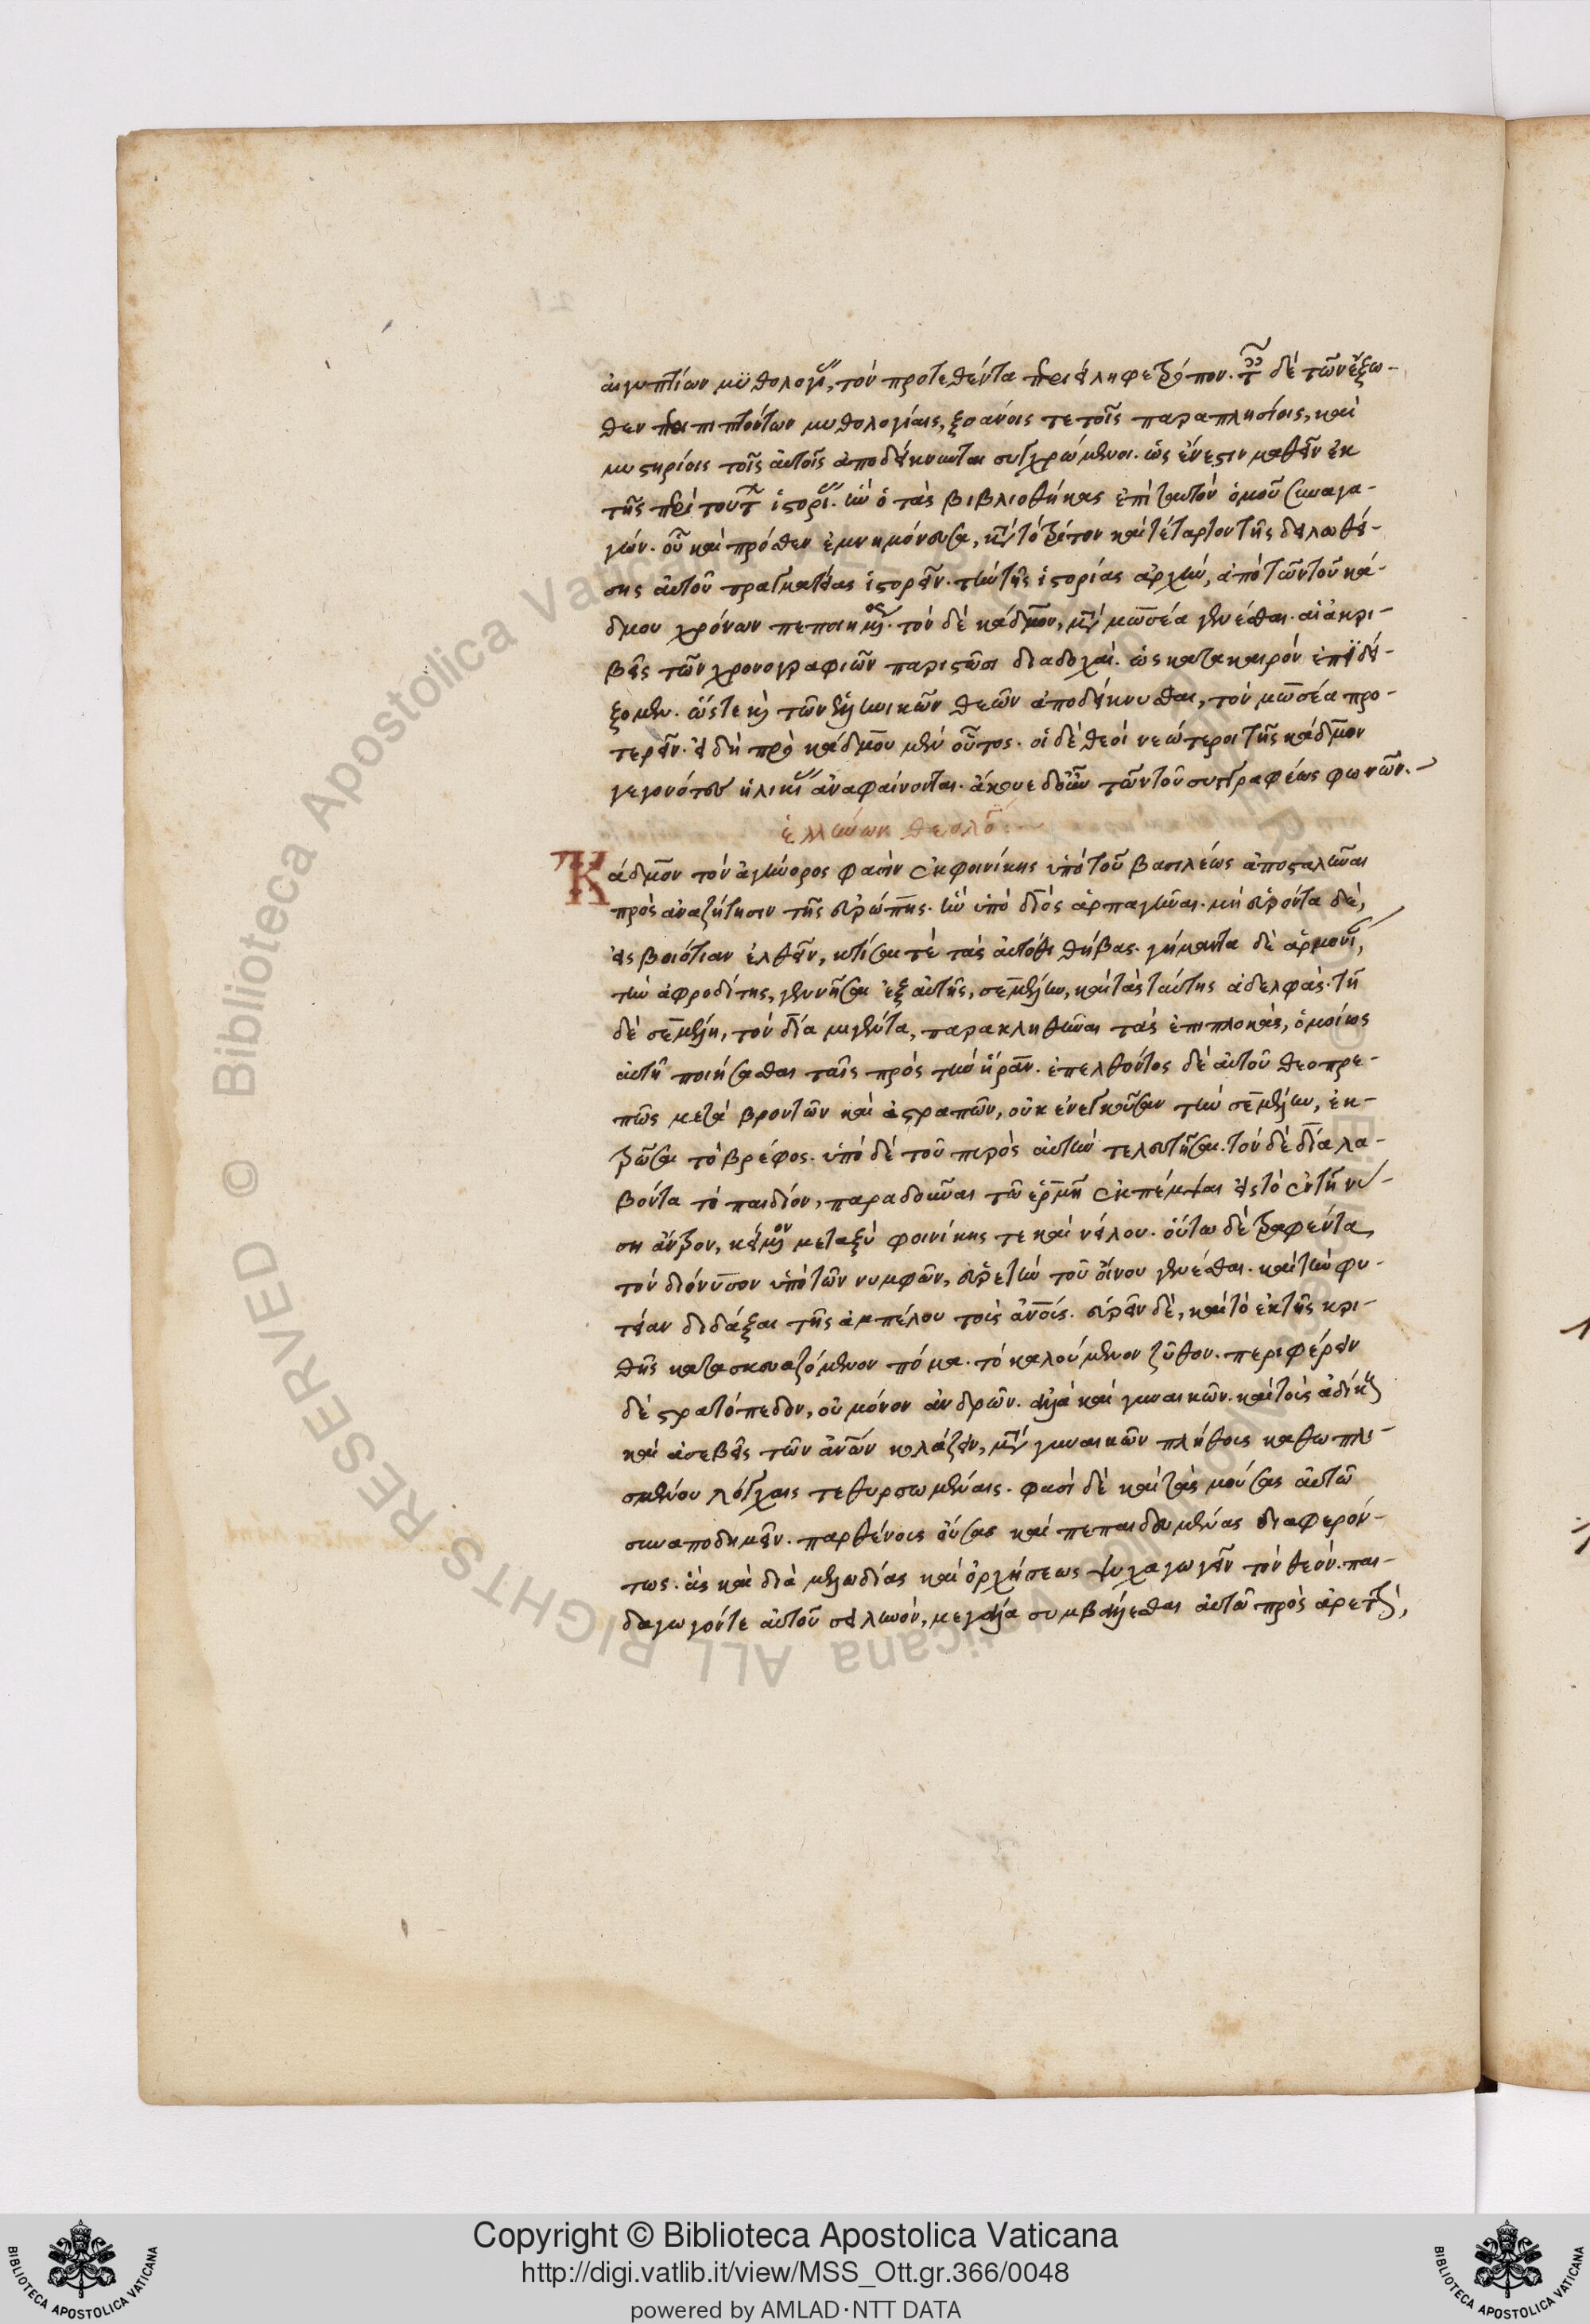 αἰγυπτίων μυθολογίας, τὸν προτεθέντα περιείληφε τρόπον. ταῦτα δὲ τῶν ἔξω-
θεν περιπιπτόντων μυθολογίαις, ξοάνοις τε τοῖς παραπλησίοις, καὶ
μυστηρίοις τοῖς αὐτοῖς ἀποδείκνυνται συγχρώμενοι. ὡς ἔνεστιν μαθεῖν ἐκ
τῆς περὶ τούτων ἱστορίας. ἣν ὁ τὰς βιβλιοθήκας ἐπὶ ταυτὸν ὁμοῦ συναγα-
γών. οὗ καὶ πρόσθεν ἐμνημόνευσα, κατὰ τὸ τρίτον καὶ τέταρτον τῆς δηλωθεί-
σης αὐτοῦ πραγματείας ἱστορεῖν. τὴν τῆς ἱστορίας ἀρχὴν, ἀπὸ τῶν τοῦ κά-
δμου χρόνων πεποιημένος. τὸν δὲ κάδμον, μετὰ μωσέα γενέσθαι. αἱ ἀκρι-
βεῖς τῶν χρονογραφιῶν παριστῶσι διαδοχαί. ὡς κατὰ καιρὸν ἐπιδεί-
ξομεν. ὥστε καὶ τῶν ἑλληνικῶν θεῶν ἀποδείκνυσθαι, τὸν μωσέα προ-
τερεῖν. εἰ δὴ πρὸ κάδμου μὲν οὗτος. οἱ δὲ θεοὶ νεώτεροι τῆς κάδμου
γεγονότες ἡλικίας ἀναφαίνονται. ἄκουε δ' οὖν τῶν τοῦ συγγραφέως φωνῶν.
ἑλλήνων θεολο
Κάδμον τὸν ἀγήνορος φασὶν ἐκ φοινίκης ὑπὸ τοῦ βασιλέως ἀποσταλῆναι
πρὸς ἀναζήτησιν τῆς εὐρώπης. ἣν ὑπὸ διὸς ἁρπαγῆναι. μὴ εὑρόντα δὲ,
εἰς βοιότιαν ἐλθεῖν, κτίσαι τὲ τὰς αὐτόθι θήβας. γήμαντα δὲ ἁρμονίαν,
τὴν ἀφροδίτης, γεννῆσαι ἐξ αὐτῆς, σεμέλην, καὶ τὰς ταύτης ἀδελφάς. τῇ
δὲ σεμέλῃ, τὸν δία μιγέντα, παρακληθῆναι τὰς ἐπιπλοκὰς, ὁμοίως
αὐτῇ ποιήσασθαι ταῖς πρὸς τὴν ἥραν. ἐπελθόντος δὲ αὐτοῦ θεοπρε-
πῶς μετὰ βροντῶν καὶ ἀστραπῶν, οὐκ ἐνεγκοῦσαν τὴν σεμέλην, ἐκ-
τρῶσαι τὸ βρέφος. ὑπὸ δὲ τοῦ πυρὸς αὐτὴν τελευτῆσαι. τὸν δὲ δία λα-
βόντα τὸ παιδίον, παραδοῦναι τῷ ἑρμῇ ἐκπέμψαι εἰς τὸ ἐν τῇ νύ-
σῃ ἄντρον, κείμενον μεταξὺ φοινίκης τε καὶ νείλου. οὕτω δὲ τραφέντα
τὸν διόνυσον ὑπὸ τῶν νυμφῶν, εὑρετὴν τοῦ οἴνου γενέσθαι. καὶ τὴν φυ-
τείαν διδάξαι τῆς ἀμπέλου τοὺς ἀνους. εὑρεῖν δὲ, καὶ τὸ ἐκ τῆς κρι-
θῆς κατασκευαζόμενον πόμα. τὸ καλούμενον ζῦθον. περιφέρειν
δὲ στρατόπεδον, οὐ μόνον ἀνδρῶν. ἀλλὰ καὶ γυναικῶν. καὶ τοὺς ἀδίκους
καὶ ἀσεβεῖς τῶν ἀνων κολάζειν, μετὰ γυναικῶν πλήθους καθωπλι-
σμένου λόγχαις τεθυρσωμέναις. φασὶ δὲ καὶ τὰς μούσας αὐτῷ
συναποδημεῖν. παρθένους οὔσας καὶ πεπαιδευμένας διαφερόν-
τως. ἃς καὶ διὰ μελωδίας καὶ ὀρχήσεως ψυχαγωγεῖν τὸν θεόν. παι-
δαγωγόντε αὐτοῦ σειληνὸν, μεγάλα συμβάλλεσθαι αὐτῷ πρὸς ἀρετὴν,
Copyright © Biblioteca Apostolica Vaticana
http://digi.vatlib.it/view/MSS_Ott.gr.366/0048
powered by AMLAD·NTT DATA